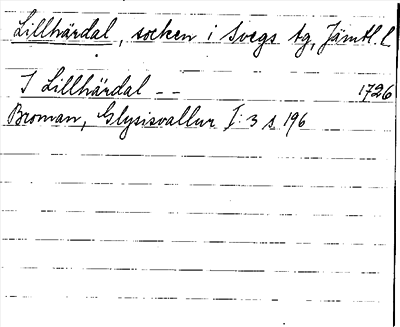 Lillhärdal, socken i Svegs tg, Jämtl. l
I Lillhärdal -- 1726
Broman, Glysisvallur I: 3 s 196